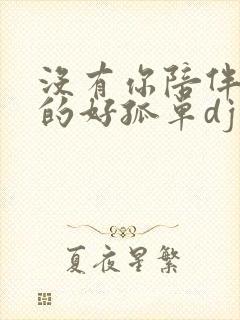 没有你陪伴
的好孤单dj
夏夜星繁